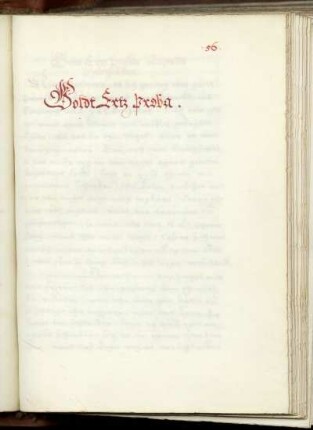 56.
Goldt Ertz Proba.